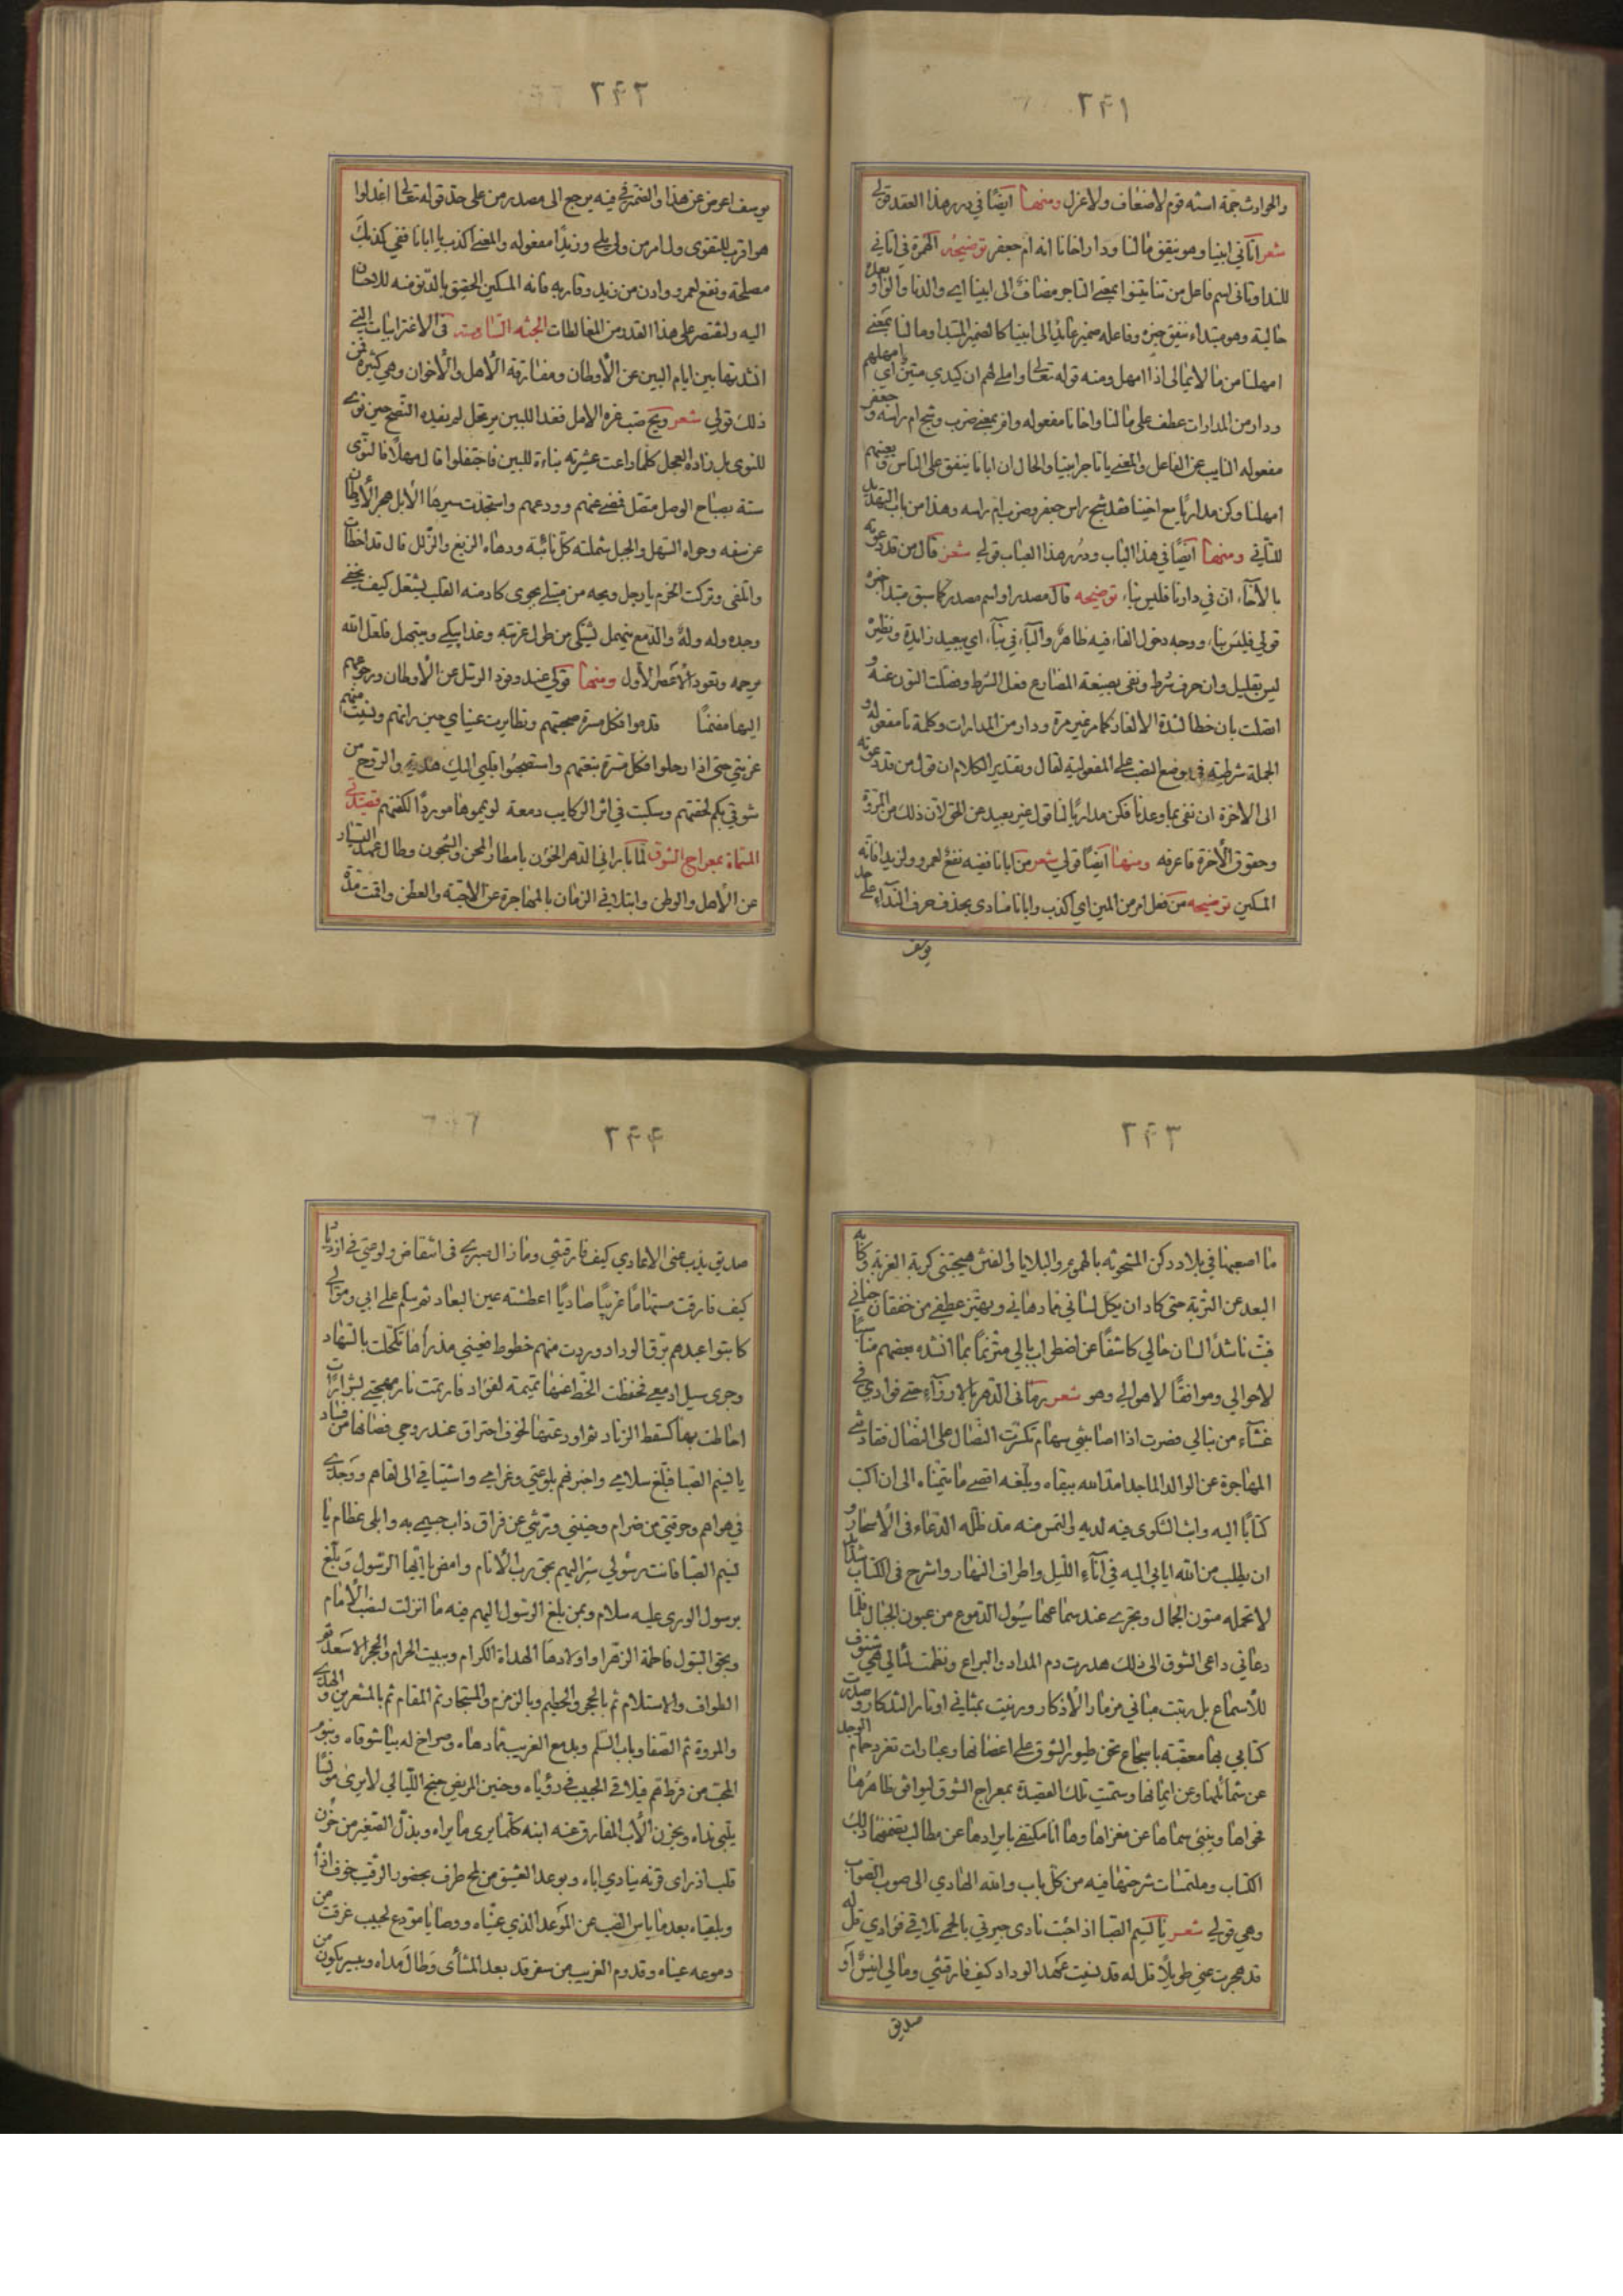 ۲۴۱
والحوادث جمة اسنه قوم لاضعاف ولاعزل ومنها ايضًا في درر هذا العقد قولي
شعر اتاني ابينا وهو ينفق مالنا ودار اخانا انه ام جعفر توضيحه الهمزة في اتاني
للندا وتاني اسم فاعل من تنا يتنوا بمعنى التاجر مضاف الى ابينا اي والدنا والواو بعده
حالية وهو مبتداء ينفق خبره وفاعله ضمير عائد الى ابينا كالضمير المبتدا وما لنا بمعنى
امهلنا من مالا يمالى اذا امهل ومنه قوله تعالى واملي لهم ان كيدي متين اي امهلهم
ودار من المدارات عطف على مالنا واخانا مفعوله وام بمعنى ضرب وشج ام راسه وجعفر
مفعوله النايب عن الفاعل والمعنى يا تاجر ابينا والحال ان ابانا ينفق على الناس
امهلنا وكن مداريًا مع اخينا فقد شج راس جعفر وضرب ام راسه وهذا من باب التهديد
للتاني ومنها ايضًا في هذا الباب ودرر هذا العباب قولي شعر قال من قد دعوته
بالآخاء ان في دارنا فليس بناء توضيحه قال مصدر او اسم مصدر كما سبق مبتدا خبره
قولي فليس بناء ووجه دخول الفاء فيه ظاهر والباء في بناء اي ببعيد زايدة ونظيره
ليس بقليل وان حرف شرط ونفى بصيغة المضارع فعل الشرط وفصلت النون عنه و
اتصلت بان خطا لشدة الالغاز كما مر غير مرة ودار من المدارات وكلمة نا مفعوله و
الجملة شرطية في موضع النصب على المفعولية لقال وتقدير الكلام ان قول من قد دعوته
الى الاخرة ان نفى بما وعدنا فكن مداريًا لنا قول غير بعيد عن الحق لان ذلك من المروة
وحقوق الاخرة فاعرفه ومنها ايضًا قولي شعر من ابانا ففيه نفع لعمرو ولزيد افانه
المسكين توضيحه من فعل امر من المين اي اكذب وابانا منادى بحذف حرف النداء على حد
يوسف
۲۴۲
يوسف اعرض عن هذا والضمير في فيه يرجع الى مصدر من على حد قوله تعالى اعدلوا
هو اقرب للتقوى ول امر من ولي يلي وزيدًا مفعوله والمعنى اكذب يا ابانا ففي كذبك
مصلحة ونفع لعمرو وادن من زيد وقاربه فانه المسكين الحقيق بالدنو منه للاحسان
اليه ولنقتصر على هذا القدر من المغالطات الجثه السادسة في الاغترابيات التي
انشدتها بين ايام البين عن الأوطان ومفارقة الأهل والأخوان وهي كثيرة فمن
ذلك قولي شعر ويح صب غره الامل فغدا للبين يرتحل لم يفده النصح حين نوى
للنوى بل زاده العجل كلما راعت عشيرته بناءة للبين فاحتفلوا قال مهلًا فالنوى
سنة بصباح الوصل متصل فمضى عنهم وودعهم واستجدت سيرها الأبل هجر الأوطان
عن سفه وحواه السهل والجبل شملته كل نائبة ودهاه الزيغ والزلل قال قد اخطأت
والمفى وتركت الحزم يا رجل ويحه من مبتلى بجوى كاد منه القلب يشتعل كيف يخفى
وجده وله ولهٌ والدمع ينهمل يشتكى من طول غربته وغدا يبكي ويبتهل فلعل الله
يرحمه وتعود الأعصر الأول ومنها قولي عند وفود الرسل عن الأوطان ورجوعهم
اليها مضمنًا قدموا فكل مسرة صحبتهم وتطايرت عيناي حين رأتهم ونسيت منهم
غربتي حتى اذا رحلوا فكل مسرة تبعتهم واستصحبوا قلبي اليك هدية والروح من
شوقي بكم لحقتهم وسكبت في اثر الركايب دمعة لو يمموها موردًا لكفتهم قصيدتي
المسماة بمعراج الشوق لما بارانى الدهر الخؤن بامطار المحن والشجون وطال عهد التيار
عن الأهل والوطن وابتلانى الزمان بالمهاجرة عن الاحبة والعطن واقت مدة
۲۴۳
ما اصعبها في بلاد دكن المشحونه بالهموم والبلايا والفتن هيجتنى كربة الغربة وكآبة
البعد عن التربة حتى كاد ان يكل لسانى فما دهانى ويهتز عطفى من خفقان جنانى
فبت ناشدًا لسان حالي كاشفًا عن اضطراب بالي مترنمًا بما انشده بعضهم مناسبًا
لاحوالي وموافقًا لاهوالي وهو شعر رمانى الدهر بالارزآء حتى فوادي في
غشآء من نبالي فصرت اذا اصابتني سهام تكسرت النصال على النصال فقادتنى
المهاجرة عن الوالد الماجد امد الله ببقاه وبلغه اقصى ما يتمناه الى ان اكتب
كتابًا اليه وابث الشكوى فيه لديه والتمس منه مد ظله الدعاء في الأسحار و
ان يطلب من الله ايابي اليه في آناء الليل واطراف النهار واشرح في الكتاب شدائد
لا تحمله متون الجمال وتجرى عند سماعها سيول الدموع من عيون الجبال فلما
دعاني داعى الشوق الى ذلك هدرت دم المداد واليراع ونظمت لئالي هي شنوف
للأسماع بل رتبت مبانى مزمار الأذكار ورنيت بمثانى اوتار التذكار وصدرت
كتابي بها معقبة باسجاع تحن طيور الشوق على اغصانها وعبارات تغرد حمام الوجد
عن شمائلها وعن ايمانها وسميت تلك القصيدة بمعراج الشوق ليوافق ظاهرها
فحواها وينبئ سماها عن مغزاها وها انا مكتفى بايرادها عن مطالب تضمنها ذلك
الكتاب وملتمسات شرحتها فيه من كل باب والله الهادي الى صوب الصواب
وهي قولي شعر يا نسيم الصبا اذا جئت نادى جيرتي بالحمى تلاقي فؤادي قل له
قد هجرت عني طويلًا قل له قد نسيت عهد الوداد كيف فارقتنى ومالي انيسٌ او
صديق
۲۴۴
صديق يذب عنى الاعادي كيف فارقتنى وما زال صبرى في انتقاض ولوعتى في ازدياد
كيف فارقت مستهامًا غريبًا صاديًا اعطشته عين البعاد ثم سلم على ابي وموالي
كاتبوا عبدهم برق الوداد وردت منهم خطوط فعينى مذ رأتها تكحلت بالسهاد
وجرى سيل ادمعى فحفظت الخط عنها تميمة لفؤاد فارتمت نار مهجتى بشرارات
احاطت بها كسقط الزناد ثم اودعتها لخوف احتراق عند روحي فصانها من فساد
يا نسيم الصبا فبلغ سلامي واخبرنهم بلوعتي وغرامي واشتياقي الى لقاهم ووجدى
في هواهم وحرقتي من ضرام وحنيني ورنتي عن فراق ذاب جسمي به وابلى عظام يا
نسيم الصبا فانت رسولي سر اليهم بحق رب الأنام وامض يا ايها الرسول وبلغ
برسول الورى عليه سلام وبمن بلغ الرسول اليهم فيه ما انزلت لنصب الأمام
وبحق البتول فاطمة الزهرا واولادها الهداة الكرام وببيت الحرام والحجر الاسعد ثم
الطواف والاستلام ثم بالحجر والحطيم وبالزمزم والمستجار ثم المقام ثم بالمشعرين والهدى
والمروة ثم الصفا وباب السلم وبدمع الغريب مما دهاه وصراخ له بيا شوقاه وبنور
المحب من فرط هم فيلاقي الحبيب في رؤياه وحنين المريض جنح الليالي لا يرى مونسًا
يلبي نداه وبحزن الأب المفارق عنه ابنه كلما يرى ما يراه وبذل الصغير من حزن
قلب اذ راى قرنه ينادي اباه وبوعد العشيق من لمح طرف بحضور الرقيب خوف اذا
وبلقياه بعد ما ياس الصب عن الموعد الذي عيناه ووصايا مودع لحبيب غرقت من
دموعه عيناه وقدوم الغريب من سفر قد بعد المنتأى وطال مداه وبسير يكون من